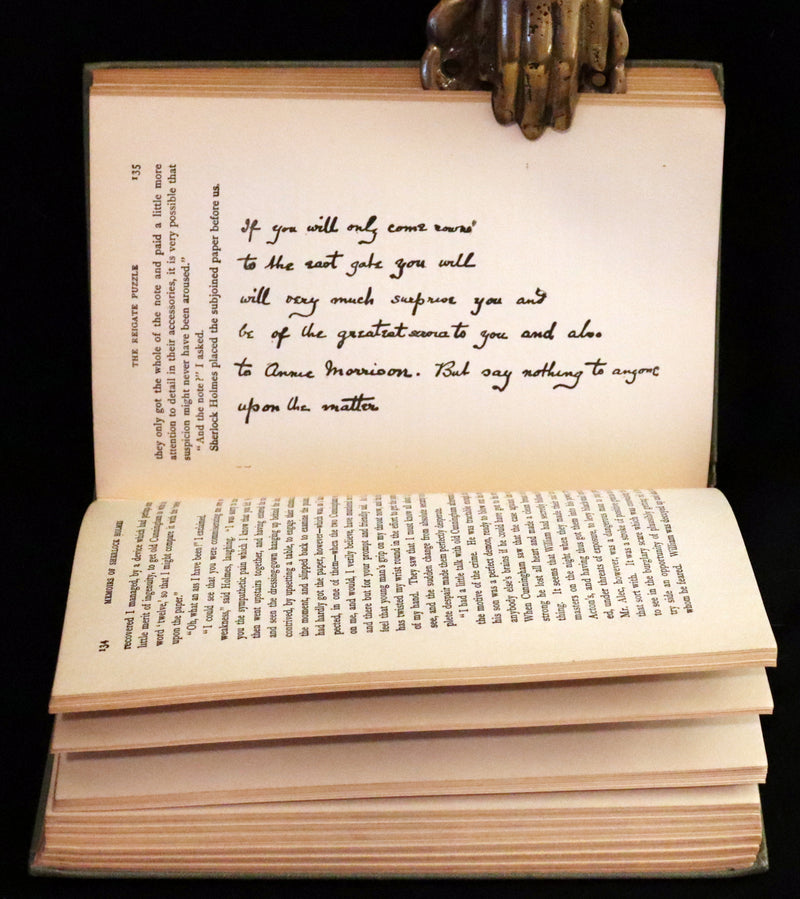 134 MEMOIRS OF SHERLOCK HOLMES
recovered I managed, by a device which had perhaps
little merit of ingenuity, to get old Cunningham to write
word 'twelve,' so that I might compare it with the
upon the paper."
"Oh, what an ass I have been!" I exclaimed.
"I could see that you were commiserating
weakness," said Holmes, laughing. "I was sorry to
you the sympathetic pain which I know that you
then went upstairs together, and having entered
and seen the dressing-gown hanging up behind
contrived, by upsetting a table, to engage their
the moment, and slipped back to examine the
had hardly got the paper, however—which was
pected, in one of them—when the two Cunninghams
on me, and would, I verily believe, have murdered
and there but for your prompt and friendly aid.
feel that young man's grip on my throat now,
has twisted my wrist round in the effort to get the
of my hand. They saw that I must know all
see, and the sudden change from absolute
plete despair made them perfectly desperate.
"I had a little talk with old Cunningham
the motive of the crime. He was tractable
his son was a perfect demon, ready to blow out
anybody else's brains if he could have got to
When Cunningham saw that the case against
strong he lost all heart and made a clean
thing. It seems that William had secretly
masters on the night when they made their
Acton's, and having thus got them into his
ed, under threats of exposure, to levy
Mr. Alec, however, was a dangerous man
that sort with. It was a stroke of
to see in the burglary scare which was
try side an opportunity of plausibly getting
whom he feared. William was decoyed
THE REIGATE PUZZLE 135
they only got the whole of the note and paid a little more
attention to detail in their accessories, it is very possible that
suspicion might never have been aroused."
"And the note?" I asked.
Sherlock Holmes placed the subjoined paper before us.
If you will only come round
to the east gate you will
will very much surprise you and
be of the greatest service to you and also
to Annie Morrison. But say nothing to anyone
upon the matter